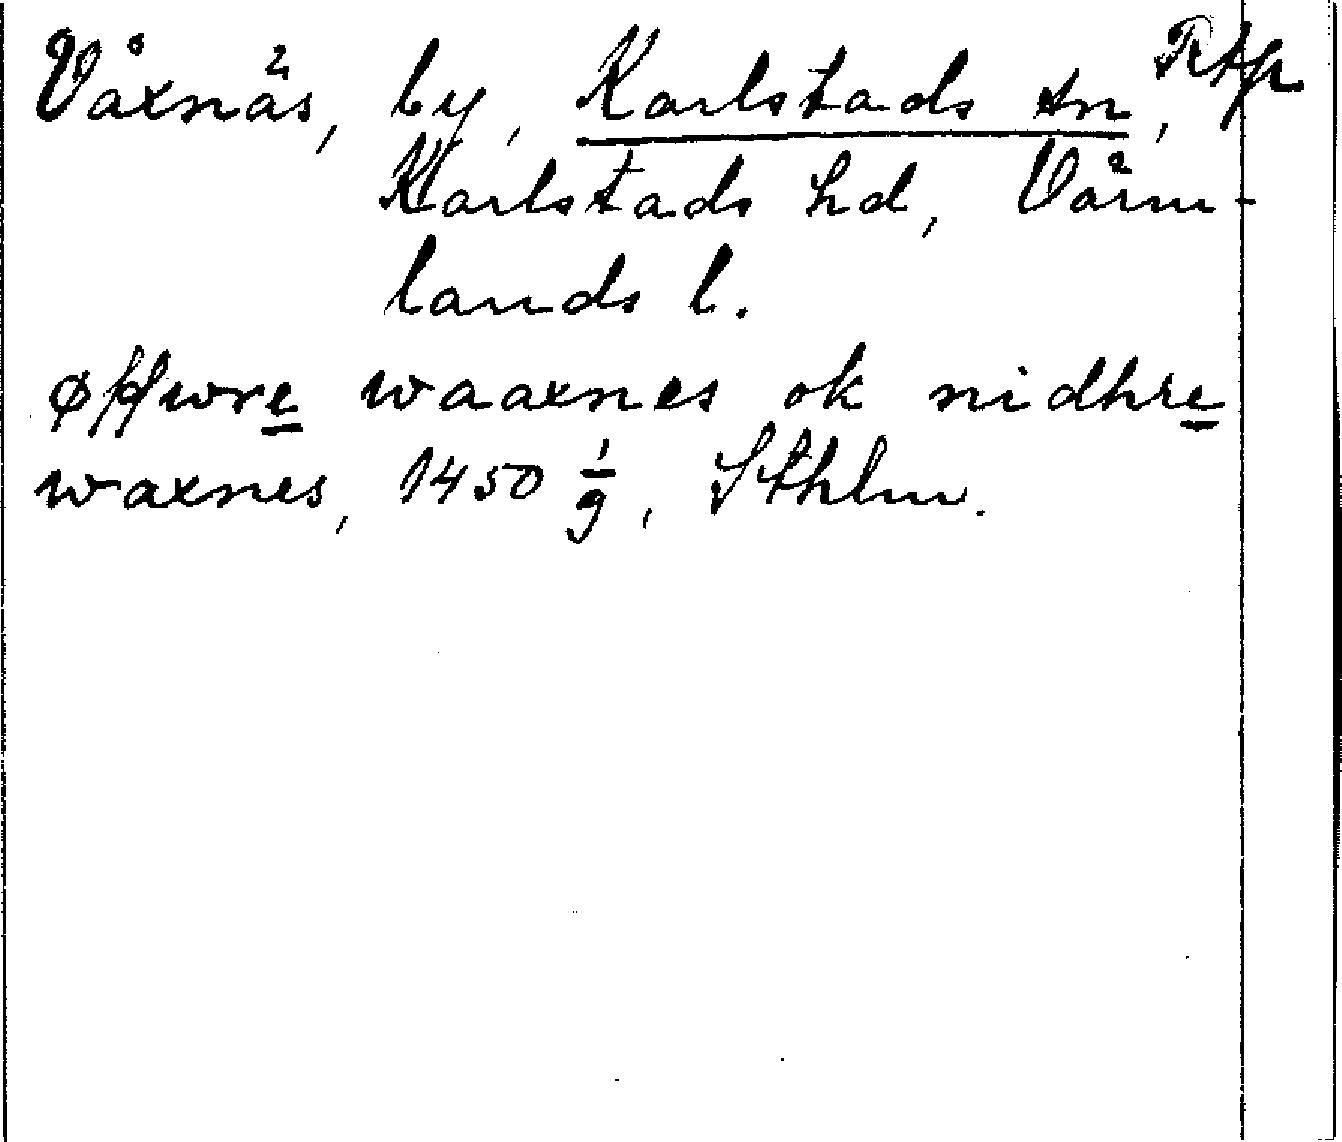 Våxnäs, by, Karlstads sn, Rtp
Karlstads hd, Värm-
lands l.
øffwre waaxnes ok nidhre
waxnes, 1450 1/9, Sthlm.